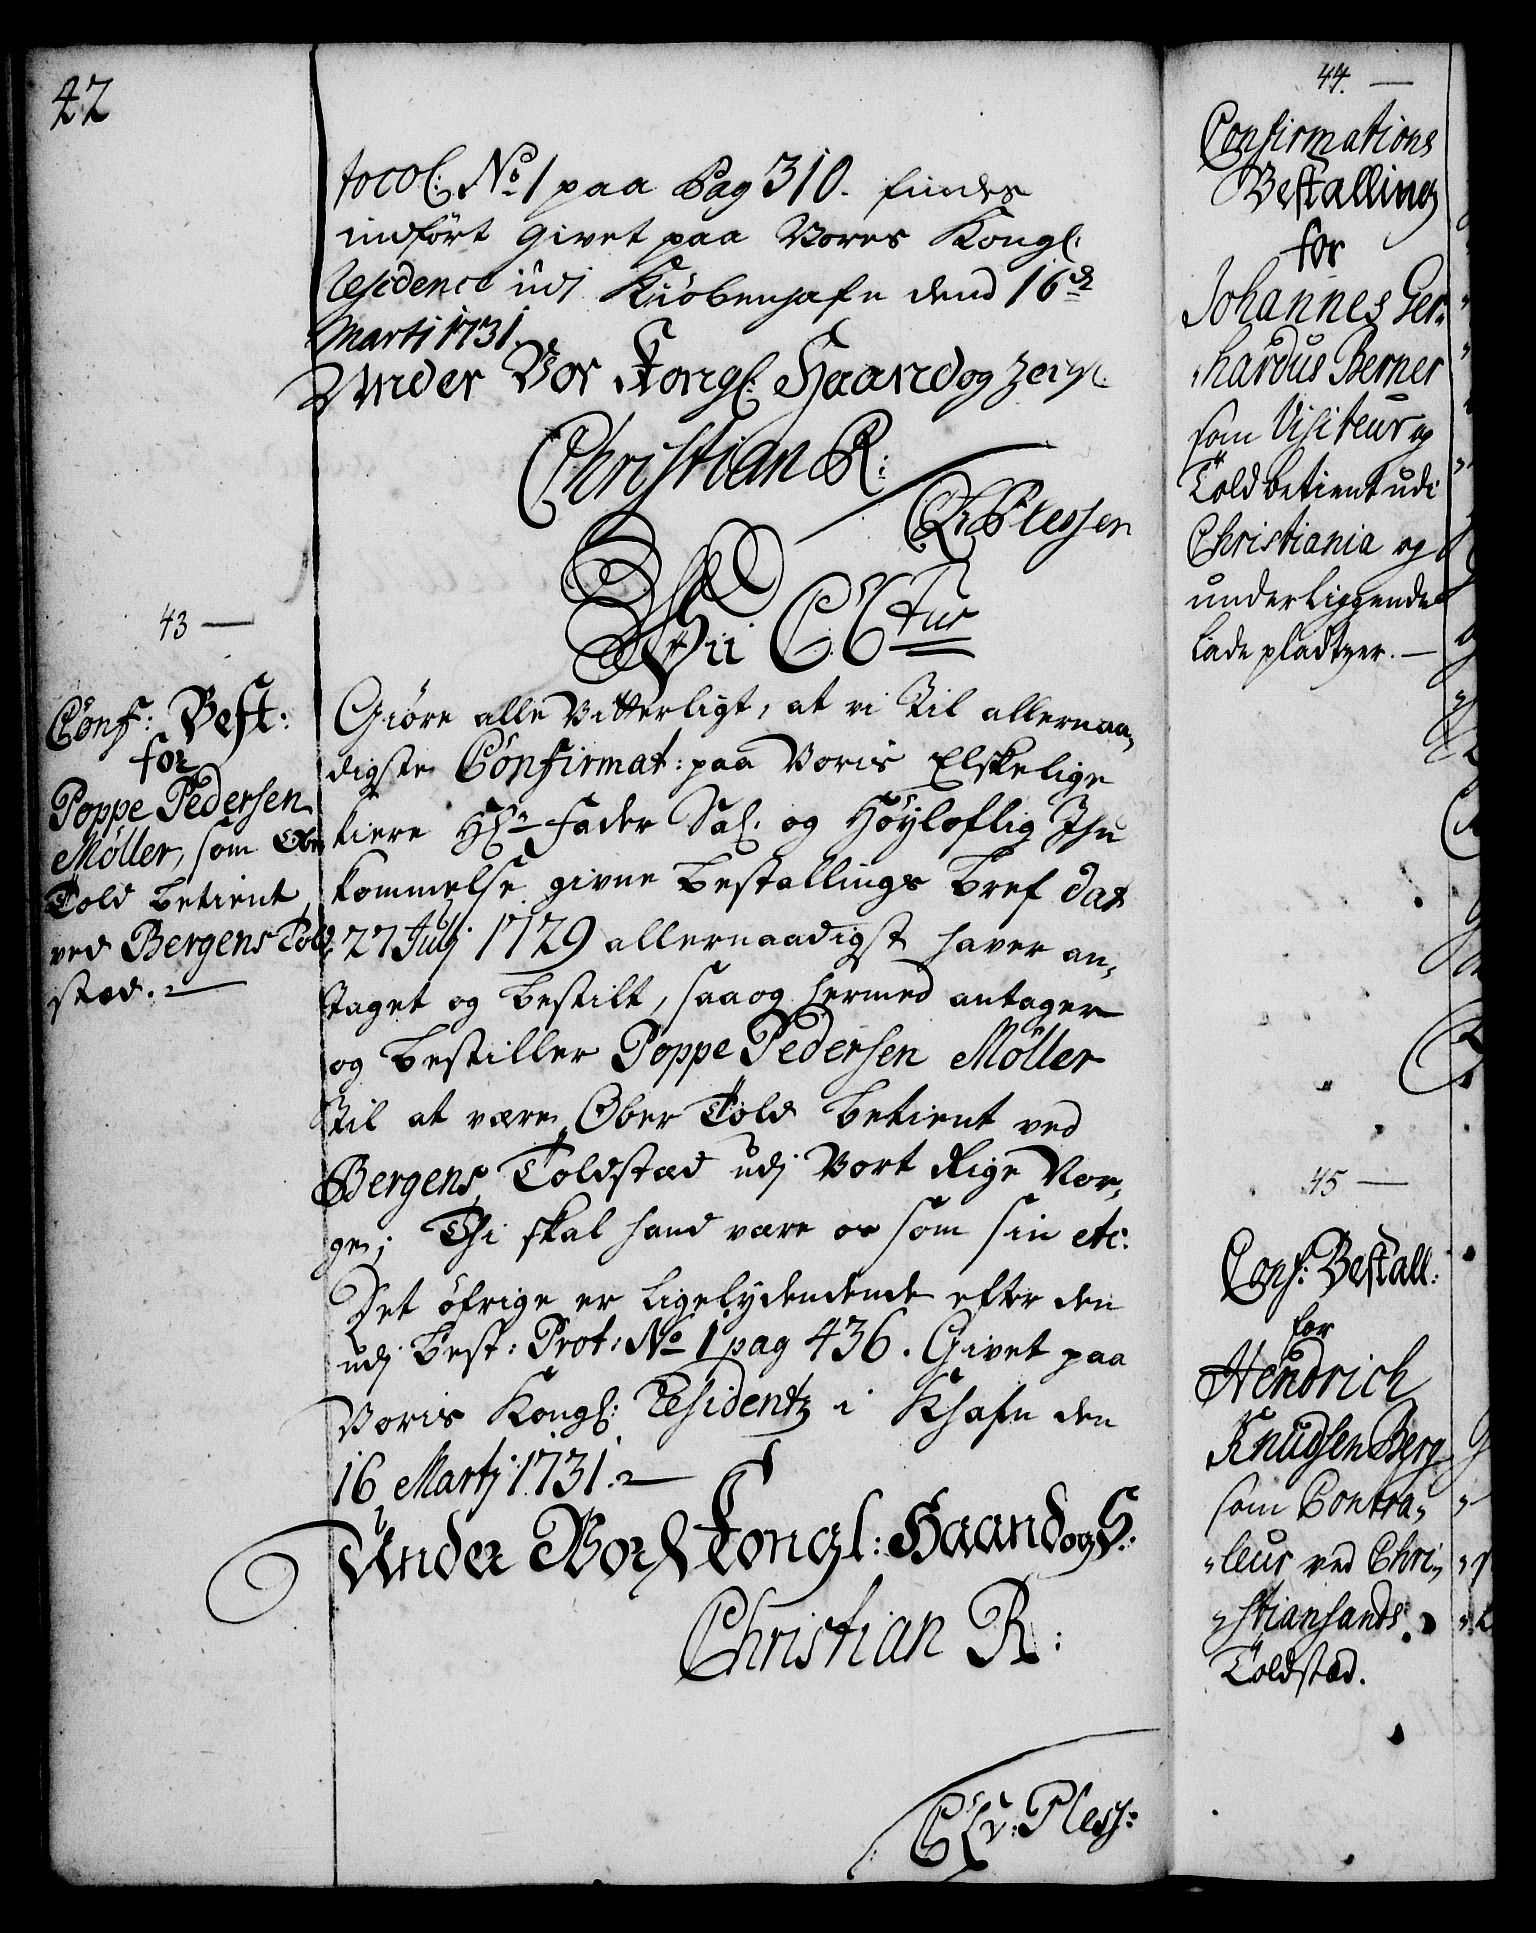 42
tocol: No 1 paa Pag 310. findes
indført Givet paa Vores Kongl:
Residence udj Kiøbenhafn dend 16de
Martj 1731.
Under Vor Kongl: Haand og Zeigl.
Christian R:
CA v Plessen
Wii C: 6tus
43 —
Conf: Best:
for
Poppe Pedersen
Møller, som Ober
Told betient
ved Bergens Told,
stæd. —
Giøre alle Vitterligt, at vi Til allernaa,
digste Confirmat: paa Voris Elskelige
kiere Hr Fader Sal. og Høyloflig Ihu
kommelse givne bestallings bref dat
27 Julj 1729 allernaadigst haver an,
taget og bestilt, saa og hermed antager
og bestiller Poppe Pedersen Møller
til at være Ober Told betient ved
Bergens Toldstæd udj Vort Rige Nor,
ge; Thi skal hand være os som sin etc:
Det øfrige er ligelydendende efter den
udj best: Prot: No 1 pag 436. Givet paa
Voris Kongl: Residentz i Khafn den
16 Martj 1731. —
Under Vor Kongl: Haand og S:
Christian R:
CA v: Pless:
44. —
Confirmations
Bestalling
for
Johannes Ger,
hardus Berner
som Visiteur og
Told betient udi
Christiania og
underliggende
Lade pladtzer. —
45 —
Conf: Bestall:
for
Hendrich
Knudsen Berg
som Contra,
leur ved Chri,
stiansands
Toldstæd.